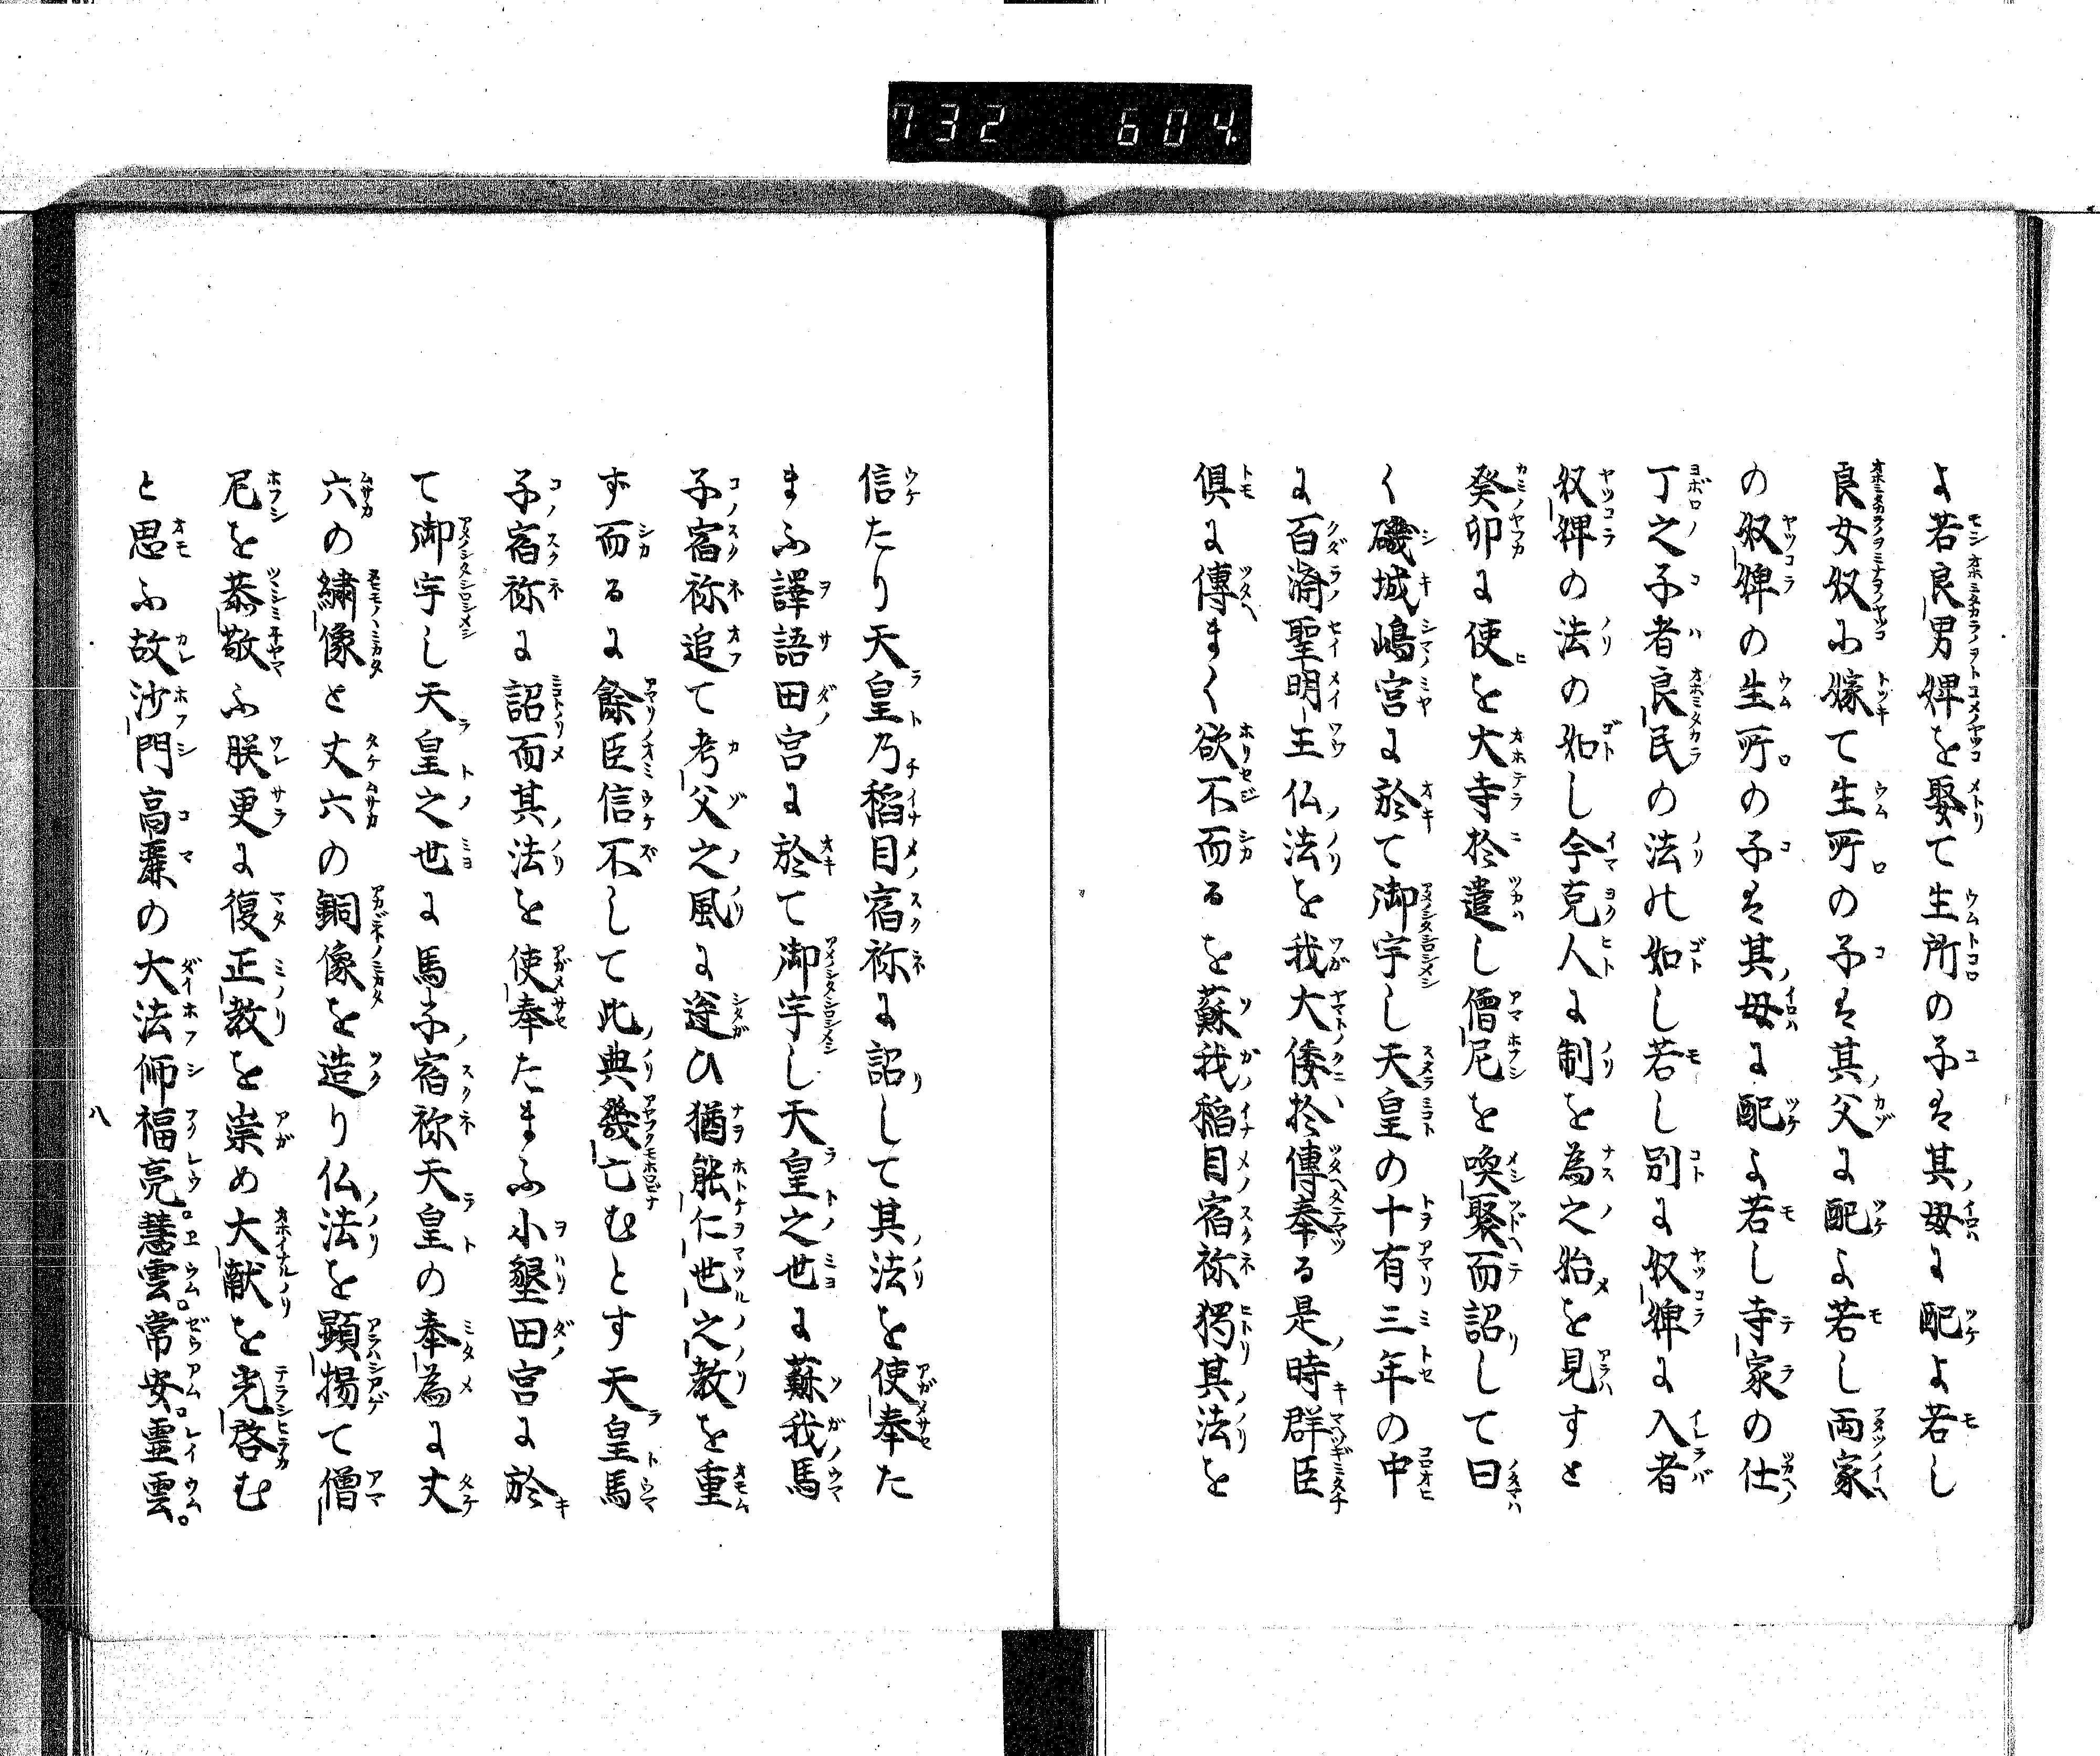 732 604.
よ若良男婢を娶て生所の子は其母に配よ若し
良女奴に嫁て生所の子は其父に配よ若し両家
の奴婢の生所の子は其母に配よ若し寺家の仕
丁之子者良民の法の如し若し別に奴婢に入者
奴婢の法の如し今克人に制を為之始を見すと
癸卯に使を大寺於遣し僧尼を喚聚而詔して曰
く磯城嶋宮に於て御宇し天皇の十有三年の中
に百済聖明王仏法を我大倭於傳奉る是時群臣
倶に傳まく欲不而るを蘇我稲目宿祢独其法を
信たり天皇乃稲目宿祢に詔して其法を使奉た
まふ譯語田宮に於て御宇し天皇之世に蘇我馬
子宿祢追て考父之風に遵ひ猶能仁世之教を重
ず而るに餘臣信不して此典幾亡むとす天皇馬
子宿祢に詔而其法を使奉たまふ小墾田宮に於
て御宇し天皇之世に馬子宿祢天皇の奉為に丈
六の繍像と丈六の銅像を造り仏法を顕揚て僧
尼を恭敬ふ朕更に復正教を崇め大猷を光啓む
と思ふ故沙門高麗の大法師福亮慧雲常安霊雲
八